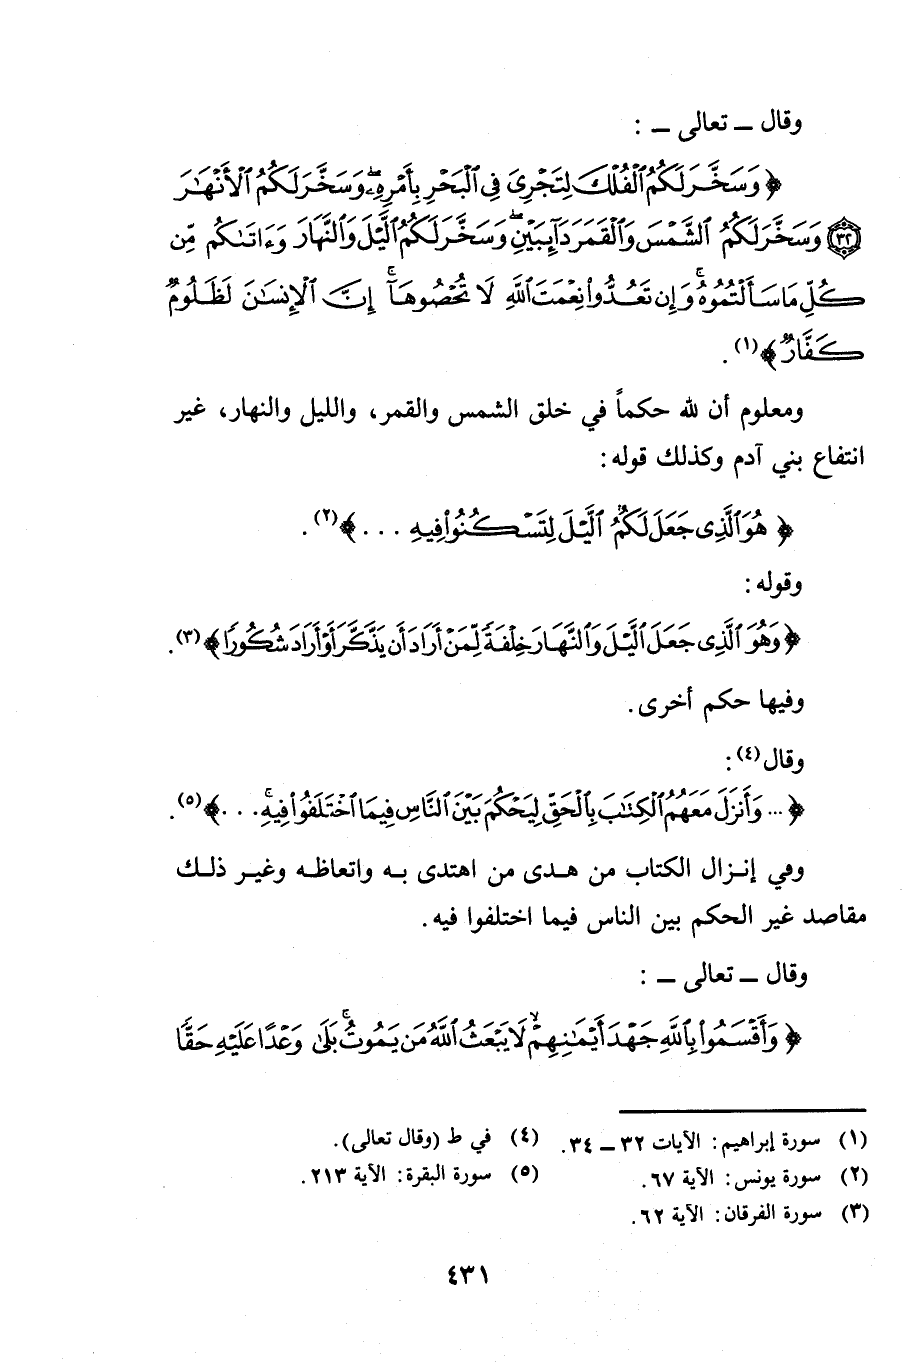 وقال ــ تعالى ــ :
﴿ وَسَخَّرَ لَكُمُ ٱلْفُلْكَ لِتَجْرِىَ فِى ٱلْبَحْرِ بِأَمْرِهِۦ ۖ وَسَخَّرَ لَكُمُ ٱلْأَنْهَٰرَ
﴿٣٢﴾ وَسَخَّرَ لَكُمُ ٱلشَّمْسَ وَٱلْقَمَرَ دَآئِبَيْنِ ۖ وَسَخَّرَ لَكُمُ ٱلَّيْلَ وَٱلنَّهَارَ وَءَاتَىٰكُم مِّن
كُلِّ مَا سَأَلْتُمُوهُ ۚ وَإِن تَعُدُّوا۟ نِعْمَتَ ٱللَّهِ لَا تُحْصُوهَآ ۗ إِنَّ ٱلْإِنسَٰنَ لَظَلُومٌ
كَفَّارٌ ﴾(١) .
ومعلوم أن لله حكماً في خلق الشمس والقمر، والليل والنهار، غير
انتفاع بني آدم وكذلك قوله:
﴿ هُوَ ٱلَّذِى جَعَلَ لَكُمُ ٱلَّيْلَ لِتَسْكُنُوا۟ فِيهِ . . . ﴾(٢) .
وقوله:
﴿ وَهُوَ ٱلَّذِى جَعَلَ ٱلَّيْلَ وَٱلنَّهَارَ خِلْفَةً لِّمَنْ أَرَادَ أَن يَذَّكَّرَ أَوْ أَرَادَ شُكُورًا ﴾(٣) .
وفيها حكم أخرى.
وقال(٤) :
﴿ ... وَأَنزَلَ مَعَهُمُ ٱلْكِتَٰبَ بِٱلْحَقِّ لِيَحْكُمَ بَيْنَ ٱلنَّاسِ فِيمَا ٱخْتَلَفُوا۟ فِيهِ ۚ . . . ﴾(٥) .
وفي إنـزال الكتاب من هـدى من اهتدى بـه واتعاظـه وغيـر ذلـك
مقاصد غير الحكم بين الناس فيما اختلفوا فيه.
وقال ــ تعالى ــ :
﴿ وَأَقْسَمُوا۟ بِٱللَّهِ جَهْدَ أَيْمَٰنِهِمْ ۙ لَا يَبْعَثُ ٱللَّهُ مَن يَمُوتُ ۚ بَلَىٰ وَعْدًا عَلَيْهِ حَقًّا
(١) سورة إبراهيم: الآيات ٣٢ ــ ٣٤.
(٢) سورة يونس: الآية ٦٧.
(٣) سورة الفرقان: الآية ٦٢.
(٤) في ط (وقال تعالى).
(٥) سورة البقرة: الآية ٢١٣.
٤٣١